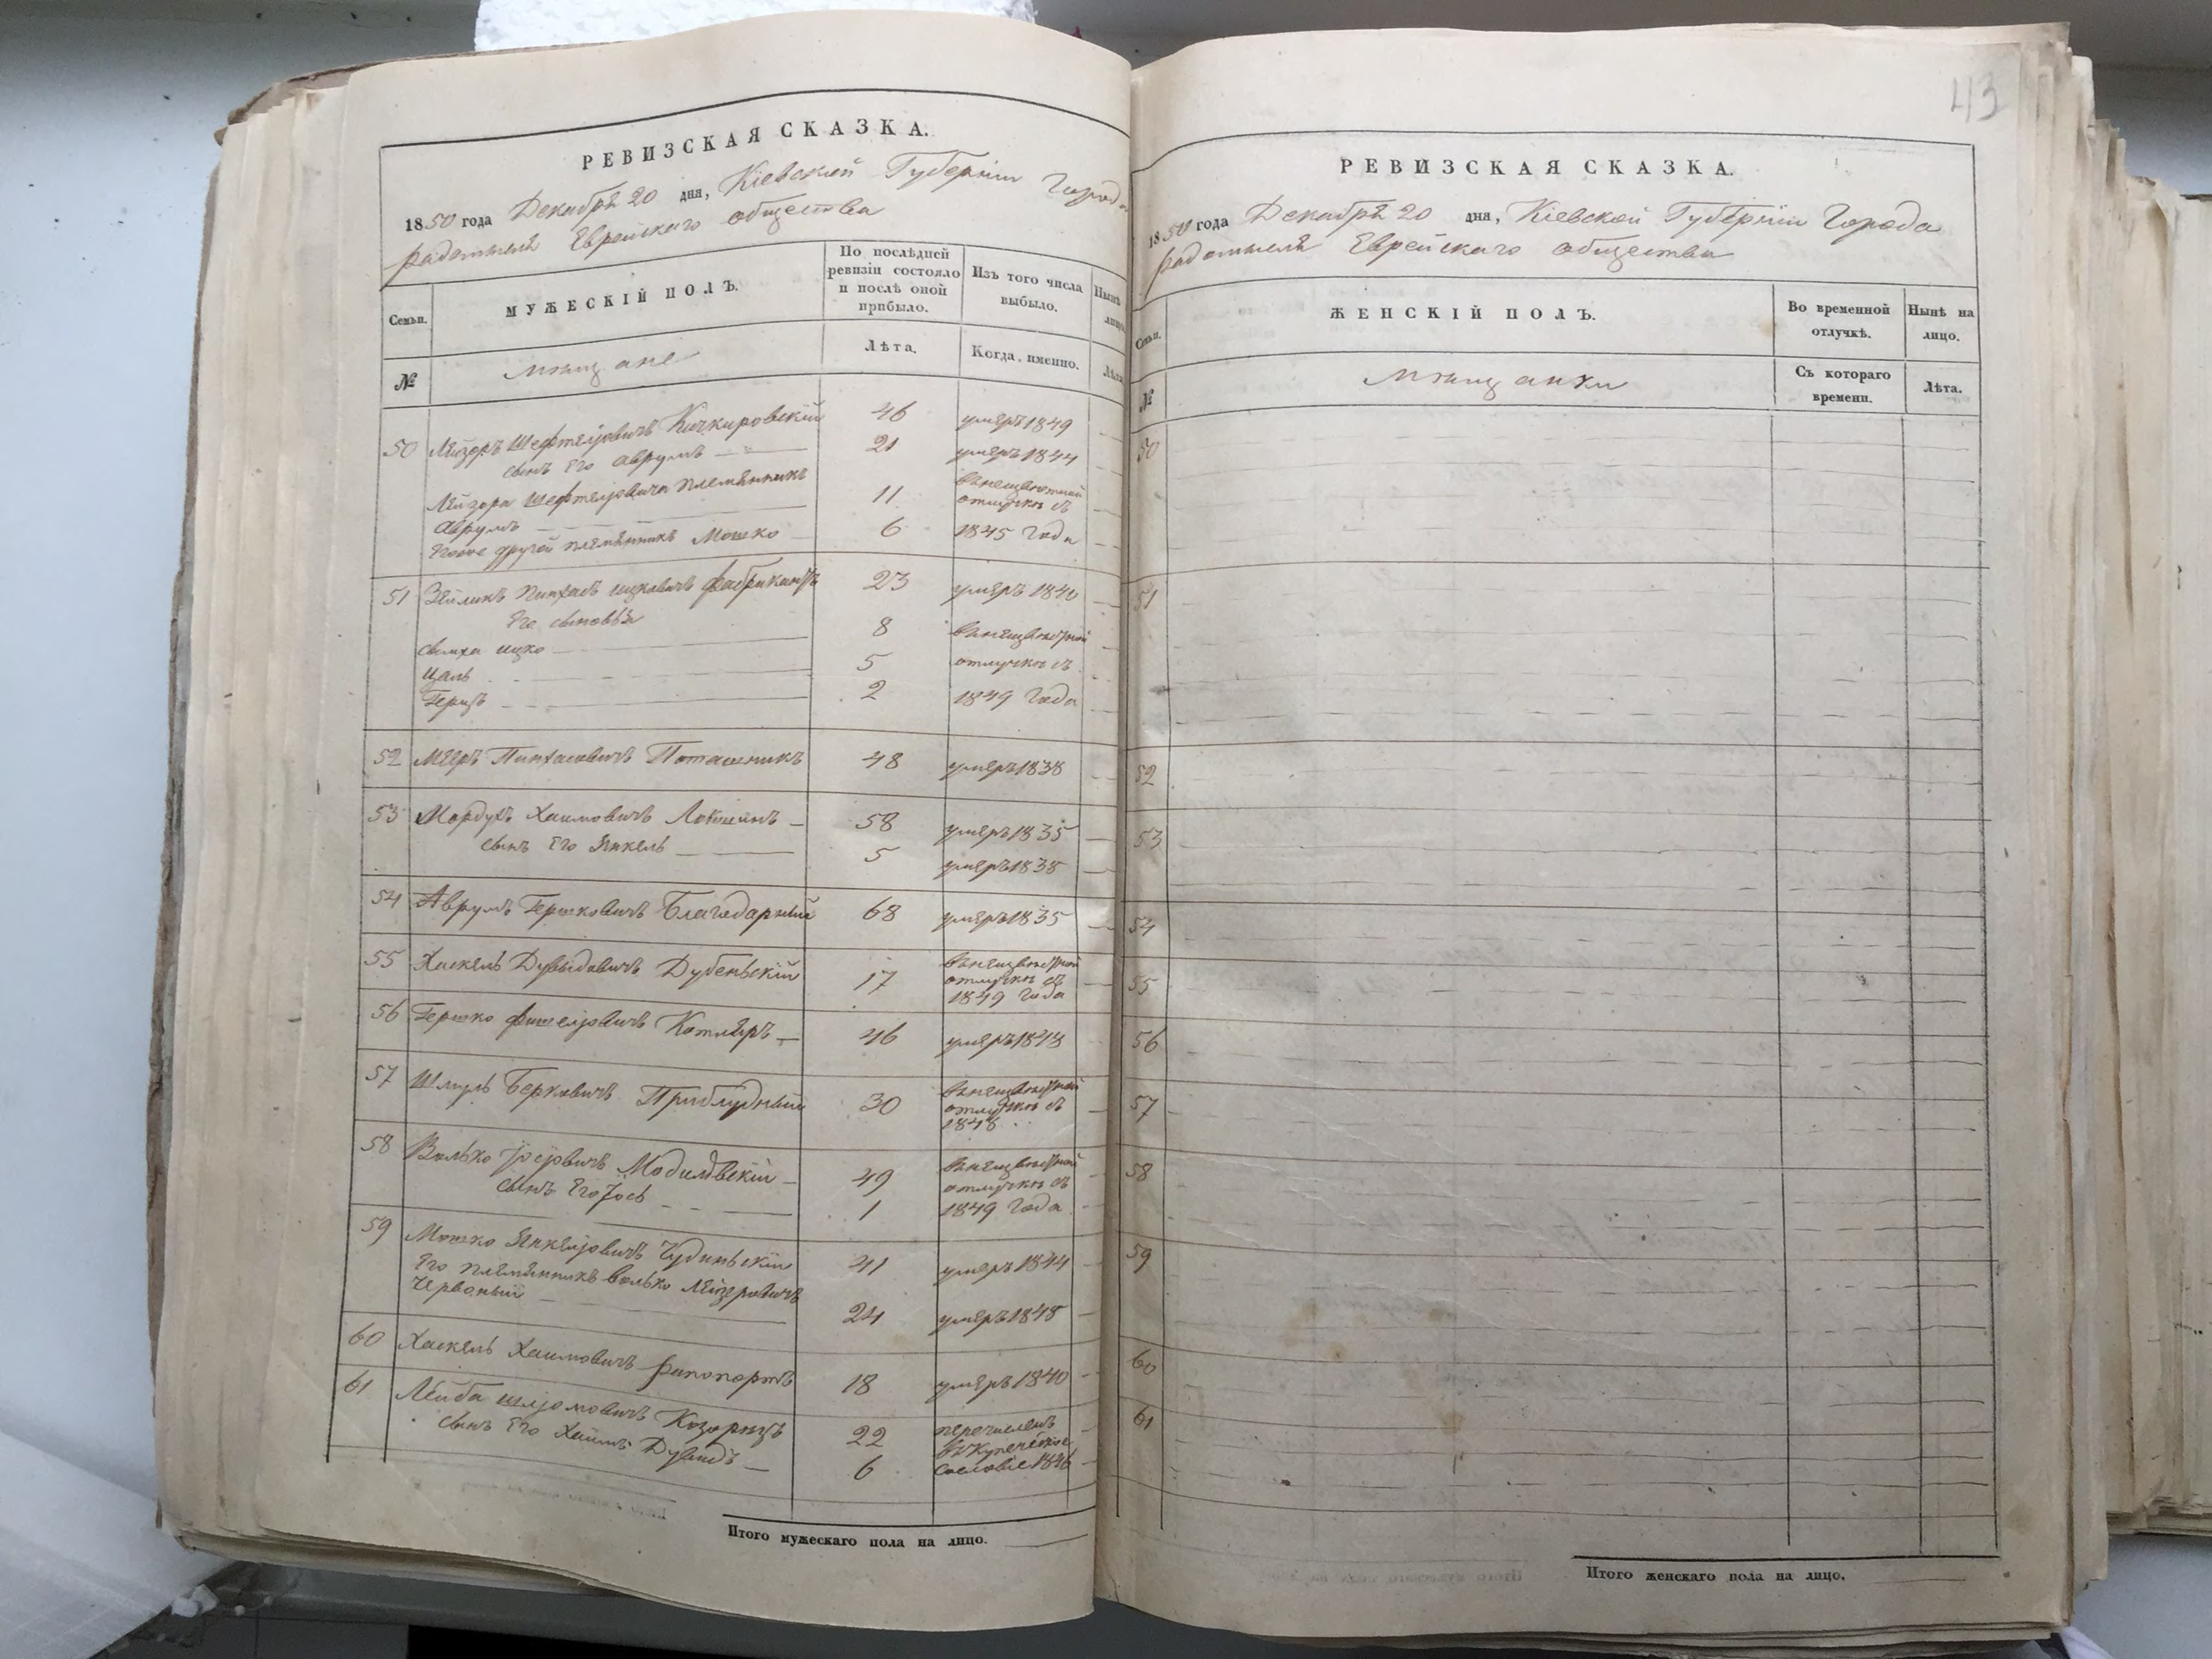 РЕВИЗСКАЯ СКАЗКА.
1850 года Декабрѣ 20 дня, Кіевской Губерніи Города
Радомысля Еврейскаго общества
Семьи.
МУЖЕСКІЙ ПОЛЪ.
По послѣдней ревизіи состояло и послѣ оной прибыло.
Изъ того числа выбыло.
Нынѣ
№
мѣщане
Лѣта.
Когда именно.
Лѣта
50 Лейзоръ Шефтелјовичъ Кичкировскій 46 умеръ 1849
сынъ Его Аврумъ 21 умеръ 1844
Лейзора Шефтелјовича племѣнникъ
Аврумъ 11 отлучкѣ съ
другой племѣнникъ Мошко 6 1845 года
51 Зейликъ Пинхасъ ицковичъ Фабрикантъ 23 умеръ 1840
Его сыновья
Симха ицко 8
Цаль 5 отлучкѣ съ
Герцъ 2 1849 года
52 Мееръ Пинхасовичъ Поташникъ 48 умеръ 1838
53 Мордухъ Хаимовичъ Локшинъ 58 умеръ 1835
сынъ Его Янкель 5 умеръ 1838
54 Аврумъ Гершковичъ Благодарный 68 умеръ 1835
55 Хаскель Дувидовичъ Дубенскій 17 отлучкѣ съ 1849 года
56 Гершко Фишелјовичъ Котляръ 46 умеръ 1848
57 Шмуль Берковичъ Приблудный 30 отлучкѣ съ 1848
58 Волько Јосјовичъ Модилѣвскій 49 отлучкѣ съ
сынъ Его Јось 1 1849 года
59 Мошко Янкелјовичъ Чудиньскій 41 умеръ 1844
Его племѣнникъ волько Лейзеровичъ
Червоный 24 умеръ 1848
60 Хаскель Хаимовичъ Рапопортъ 18 умеръ 1840
61 Лейба шлјомовичъ Козорицъ 22 перечисленъ въ купеческое
сынъ Его Хаимъ Дувидъ 6 сословіе 1846
Итого мужескаго пола на лицо.
43
РЕВИЗСКАЯ СКАЗКА.
1850 года Декабрѣ 20 дня, Кіевской Губерніи Города
Радомысля Еврейскаго общества
Семьи.
ЖЕНСКІЙ ПОЛЪ.
Во временной отлучкѣ.
Нынѣ на лицо.
№
мѣщанки
Съ котораго времени.
Лѣта.
50
51
52
53
54
55
56
57
58
59
60
61
Итого женскаго пола на лицо.